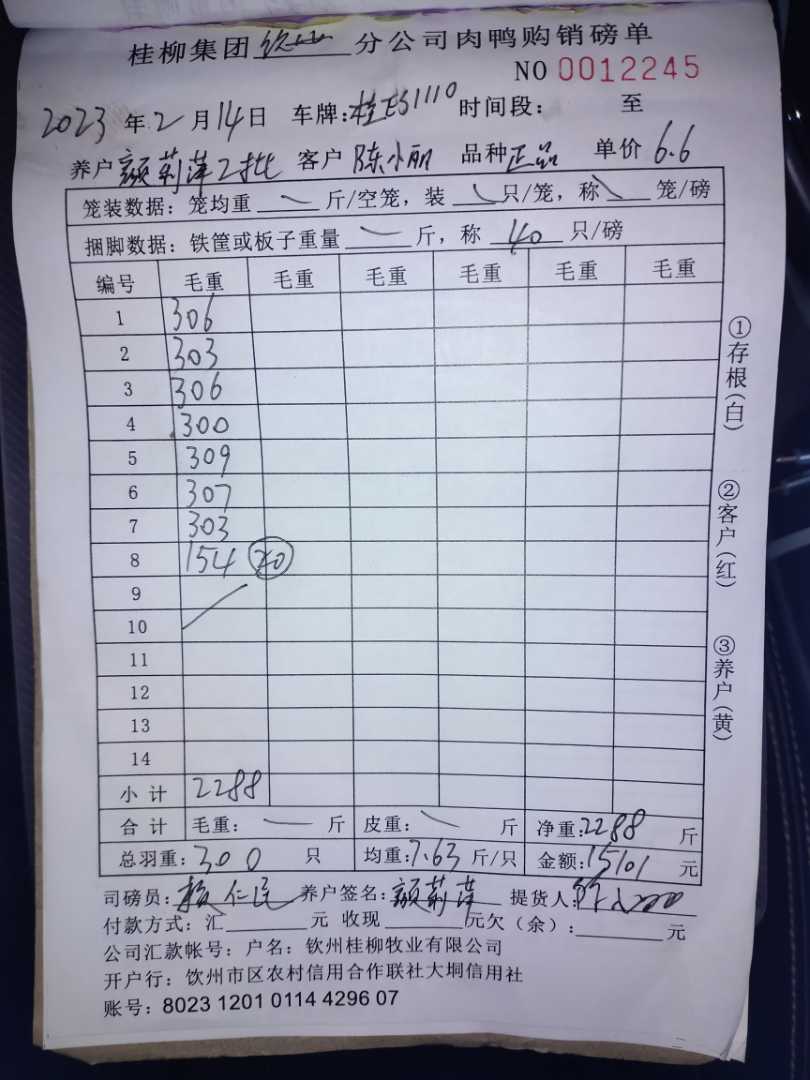 桂柳集团钦州分公司肉鸭购销磅单
NO 0012245
2023年2月14日 车牌:桂ES1110 时间段: 至
养户颜莉萍2批 客户陈小丽 品种正品 单价6.6
笼装数据:笼均重 斤/空笼,装 只/笼,称 笼/磅
捆脚数据:铁筐或板子重量 斤,称 40 只/磅
编号 毛重 毛重 毛重 毛重 毛重 毛重
1 306
2 303
3 306
4 300
5 309
6 307
7 303
8 154 20
9
10
11
12
13
14
小计 2288
合计 毛重: 斤 皮重: 斤 净重:2288斤
总羽重:300 只 均重:7.63斤/只 金额:15101元
司磅员: 仁 养户签名:颜莉萍 提货人:
付款方式:汇 元 收现 元欠(余): 元
公司汇款帐号:户名:钦州桂柳牧业有限公司
开户行:钦州市区农村信用合作联社大垌信用社
账号:8023 1201 0114 4296 07
①存根(白)
②客户(红)
③养户(黄)